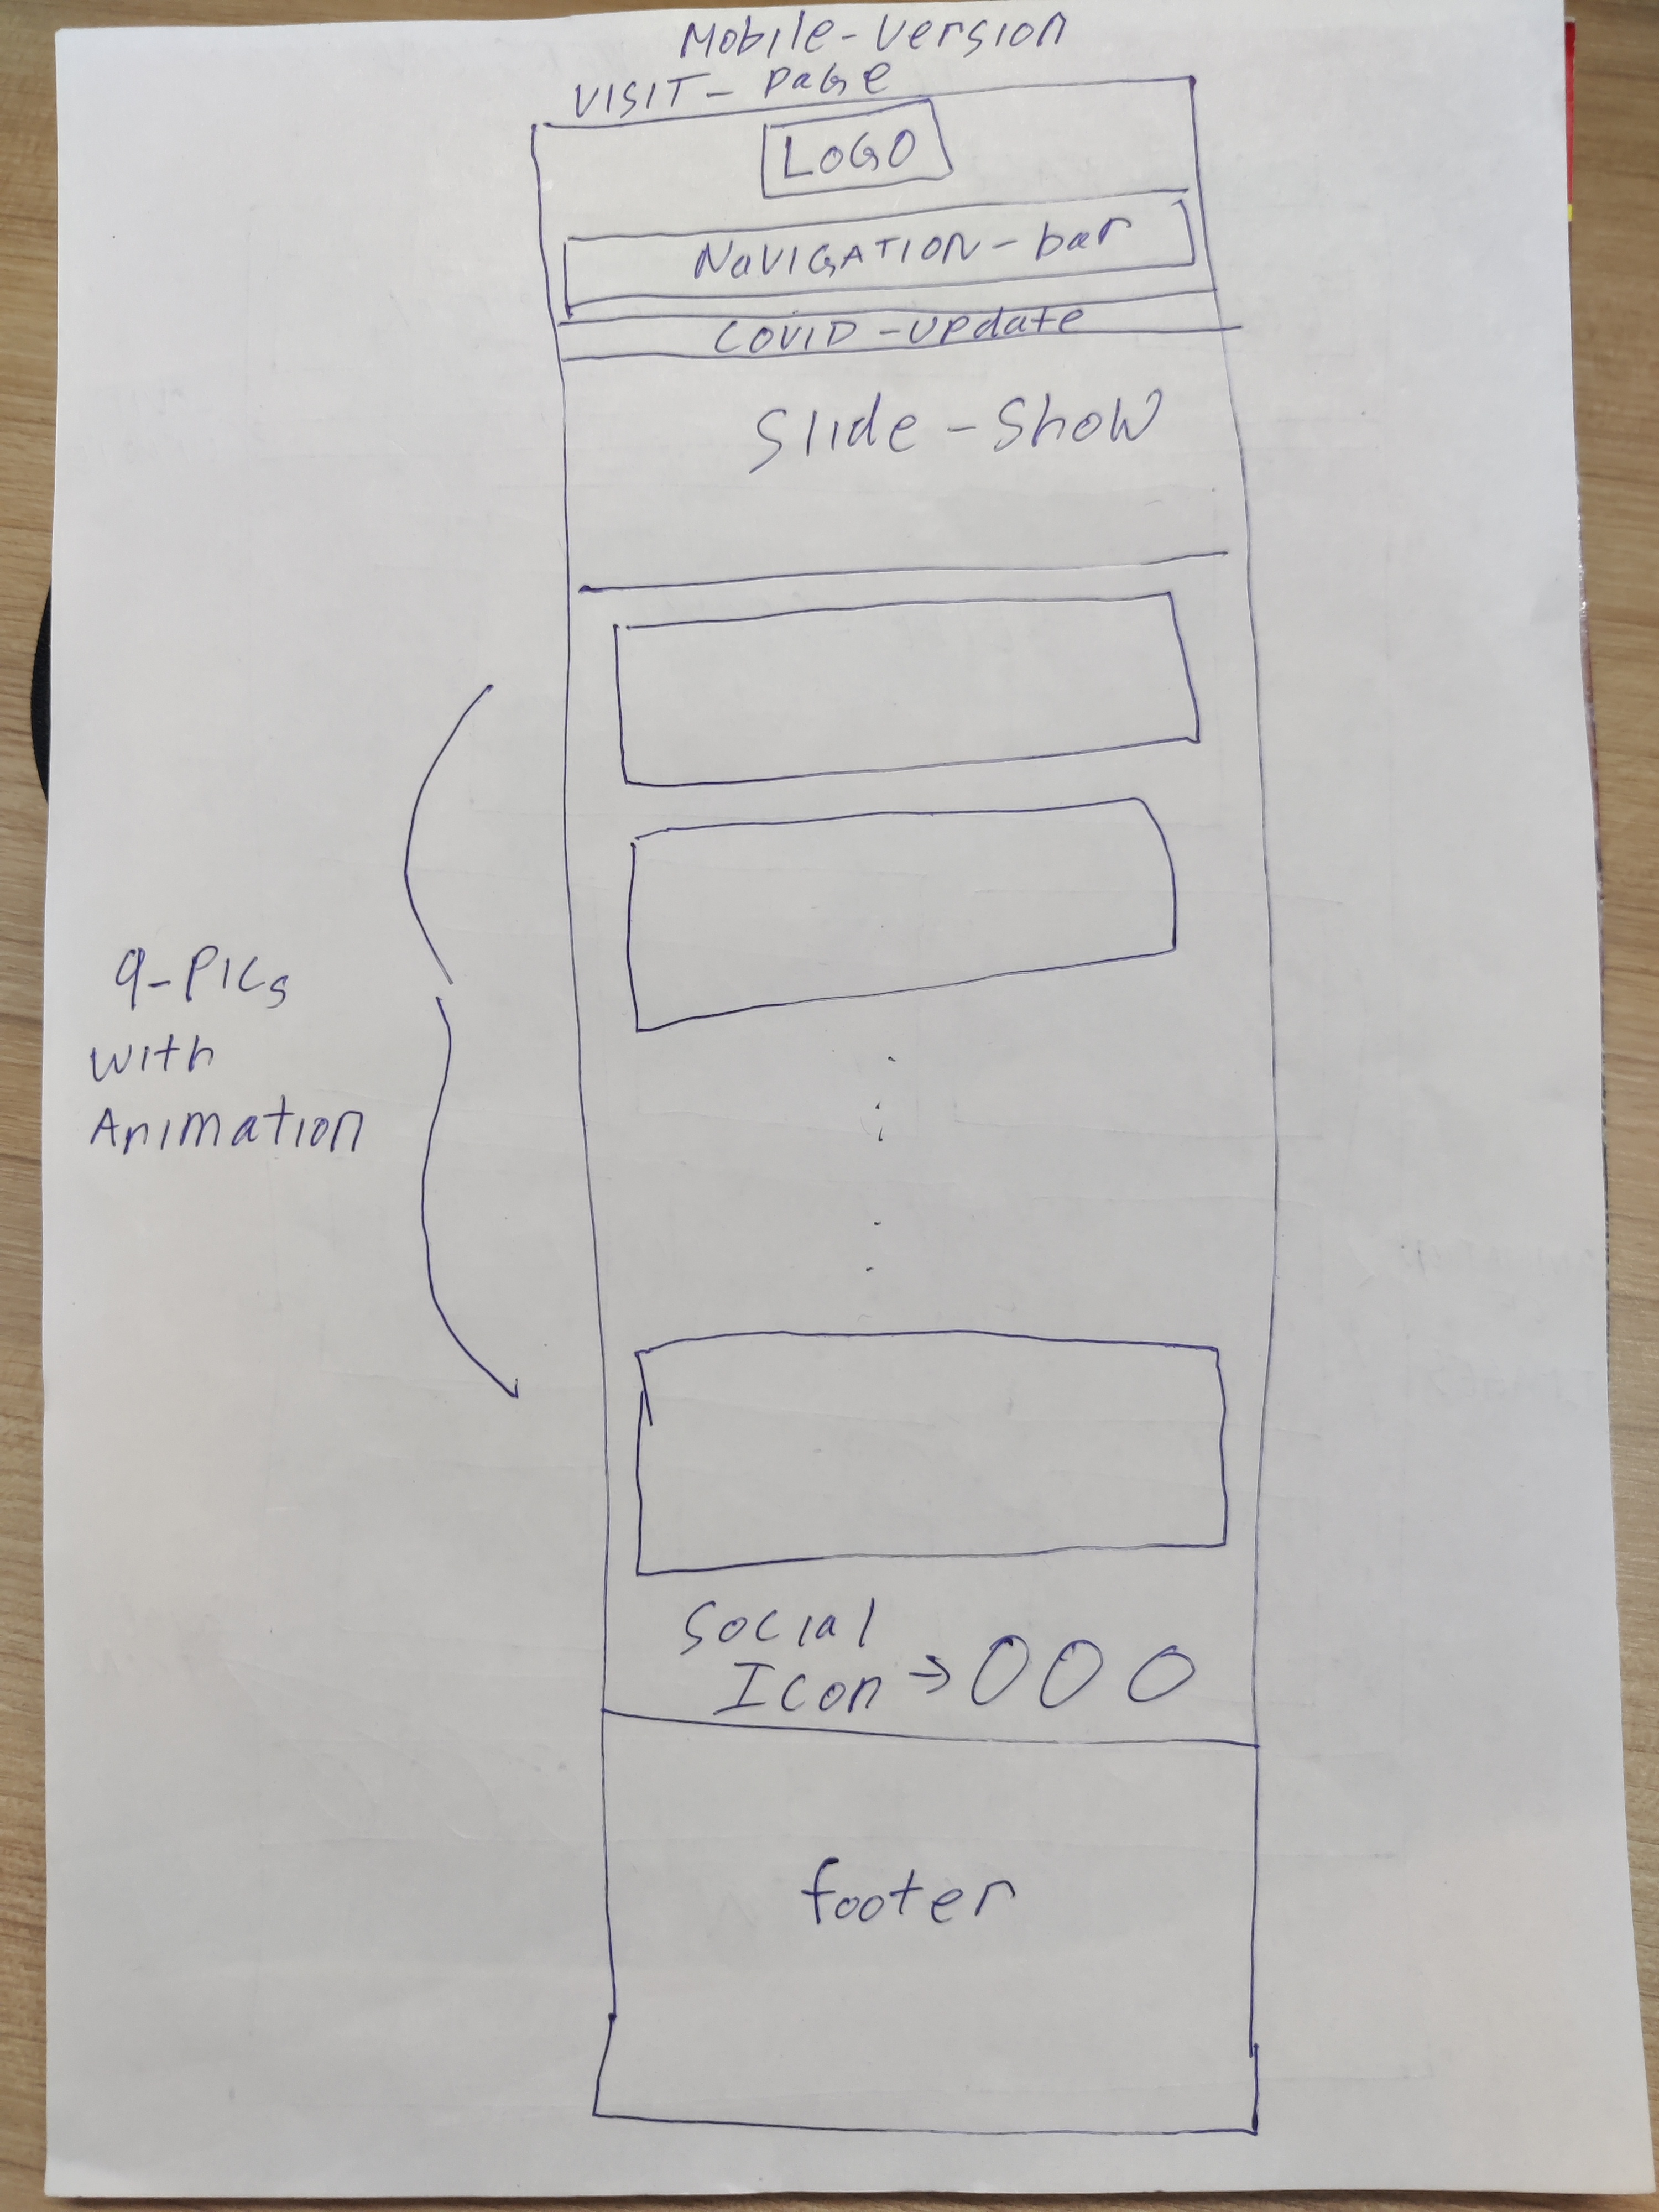 Mobile-Version
VISIT-Page
LOGO
NaVIGATION-bar
COVID-Update
Slide-Show
9-PICs
With
Animation
Social
Icon → O O O
footer